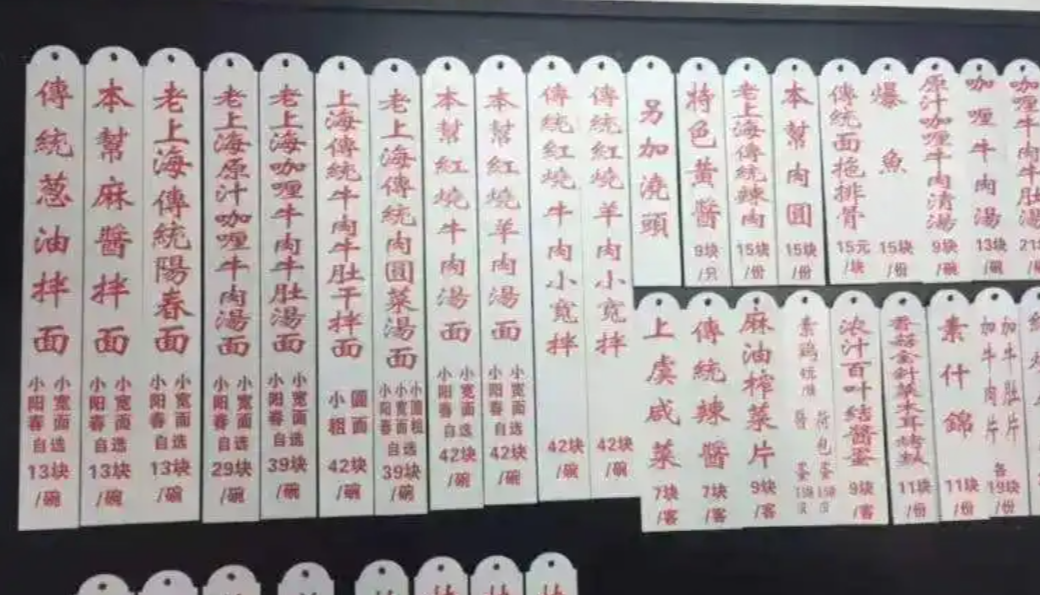 傳統葱油拌面
小阳春 小宽面
自选
13块
/碗
本幫麻醬拌面
小阳春 小宽面
自选
13块
/碗
老上海傳統陽春面
小阳春 小宽面
自选
13块
/碗
老上海原汁咖喱牛肉湯面
小阳春 小宽面
自选
29块
/碗
老上海咖喱牛肉牛肚湯面
小阳春 小宽面
自选
39块
/碗
上海傳統牛肉牛肚干拌面
小粗 圆面
42块
/碗
老上海傳統肉圓菜湯面
小阳春 小宽面 小圆粗
自选
39块
/碗
本幫紅燒牛肉湯面
小阳春 小宽面
自选
42块
/碗
本幫紅燒羊肉湯面
小阳春 小宽面
自选
42块
/碗
傳統紅燒牛肉小寬拌
42块
/碗
傳統紅燒羊肉小寬拌
42块
/碗
另加澆頭
特色黄醬
9块
/只
老上海傳統辣肉
15块
/份
本幫肉圓
15块
/份
傳統面拖排骨
15元
/块
爆魚
15块
/份
原汁咖喱牛肉清湯
9块
/碗
咖喱牛肉湯
13块
/碗
咖喱牛肉牛肚湯
/碗
上虞咸菜
7块
/客
傳統辣醬
7块
/客
麻油榨菜片
9块
/客
素鸡
荷包蛋
浓汁百叶結醬蛋
9块
/客
香菇金針菜木耳烤麩
11块
/份
素什錦
11块
/份
加牛肉片
加牛肚片
各
19块
/份